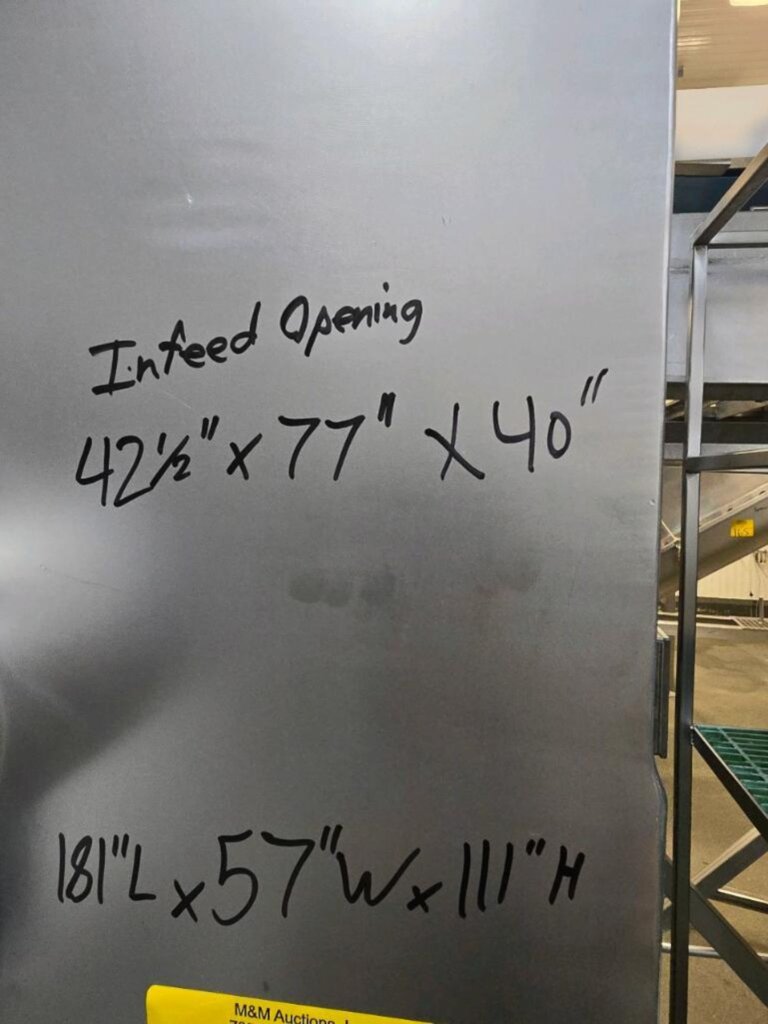 Infeed Opening
42½" x 77" x 40"
181"L x 57"W x 111"H
M&M Auctions